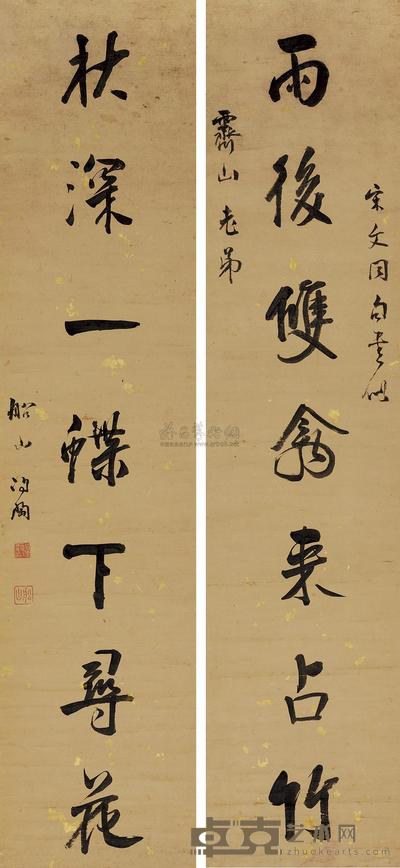 宋文同句書似
雨後雙禽来占竹
霽山老弟
秋深一蝶下尋花
船山問陶
卓克艺术网
zhuokearts.com